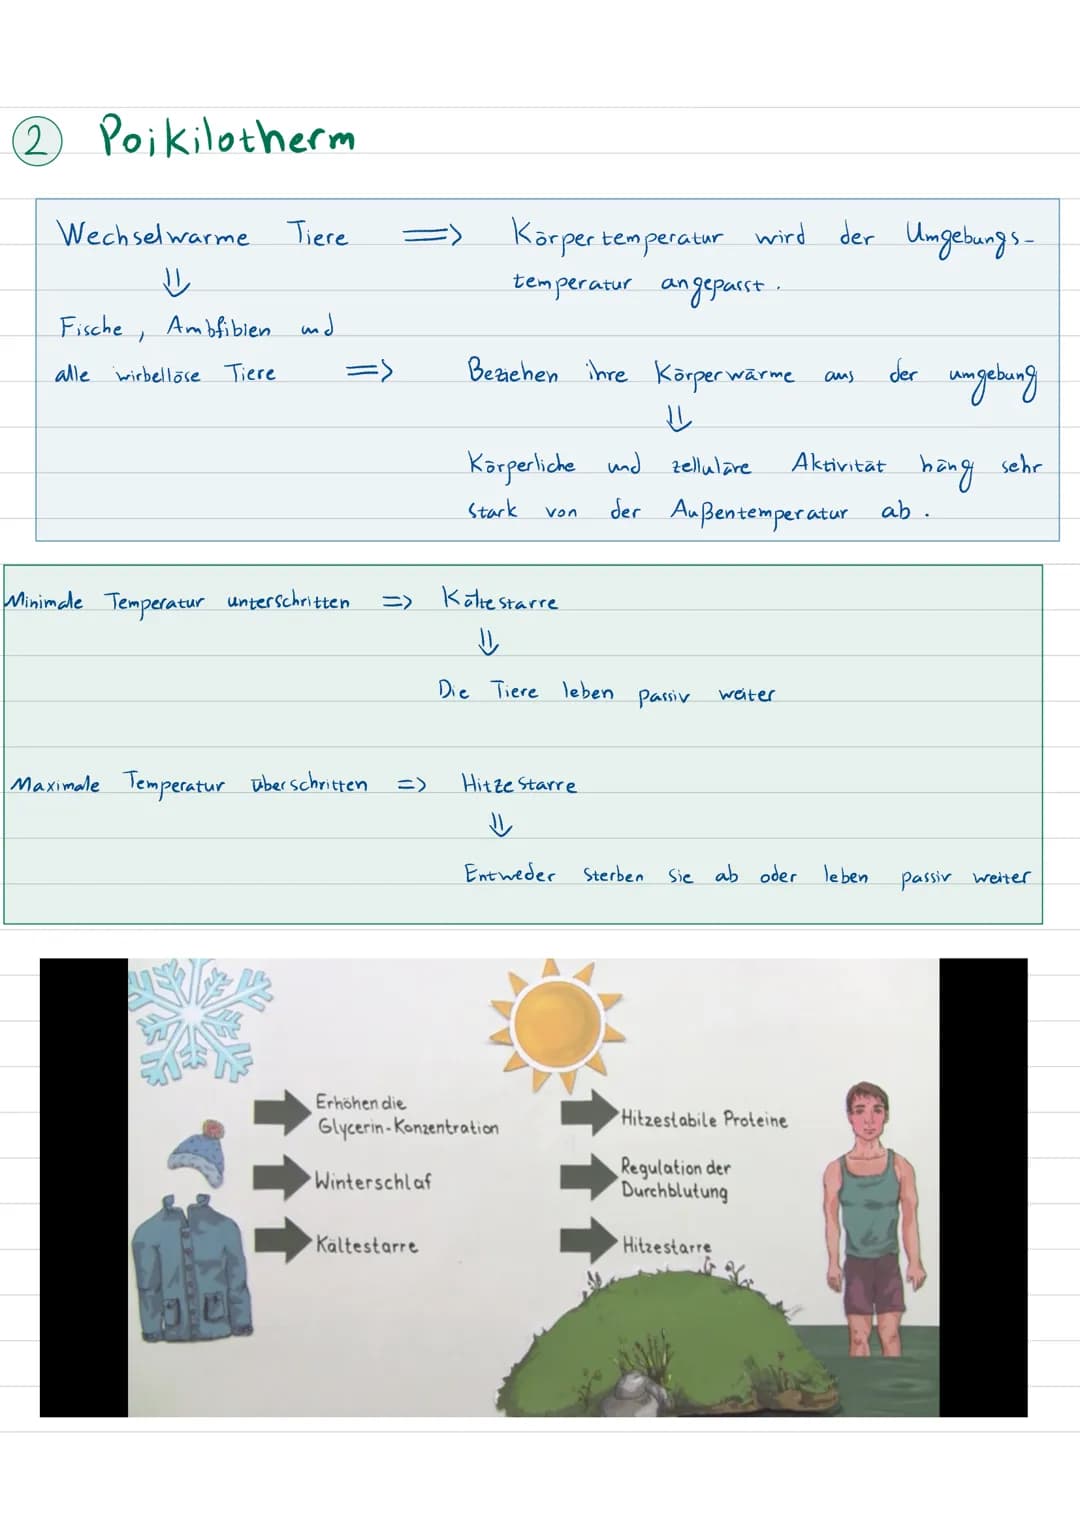 2 Poikilotherm
Wechselwarme Tiere => Körpertemperatur wird der Umgebungs-
temperatur angepasst.
Fische, Ambfibien und
alle wirbellöse Tiere => Beziehen ihre Körperwärme aus der umgebung
Körperliche und zelluläre Aktivität häng sehr
stark von der Außentemperatur ab.
Minimale Temperatur unterschritten => Kältestarre
Die Tiere leben passiv weiter
Maximale Temperatur überschritten => Hitzestarre
Entweder sterben sie ab oder leben passiv weiter
Erhöhen die
Glycerin-Konzentration
Winterschlaf
Kältestarre
Hitzestabile Proteine
Regulation der
Durchblutung
Hitzestarre